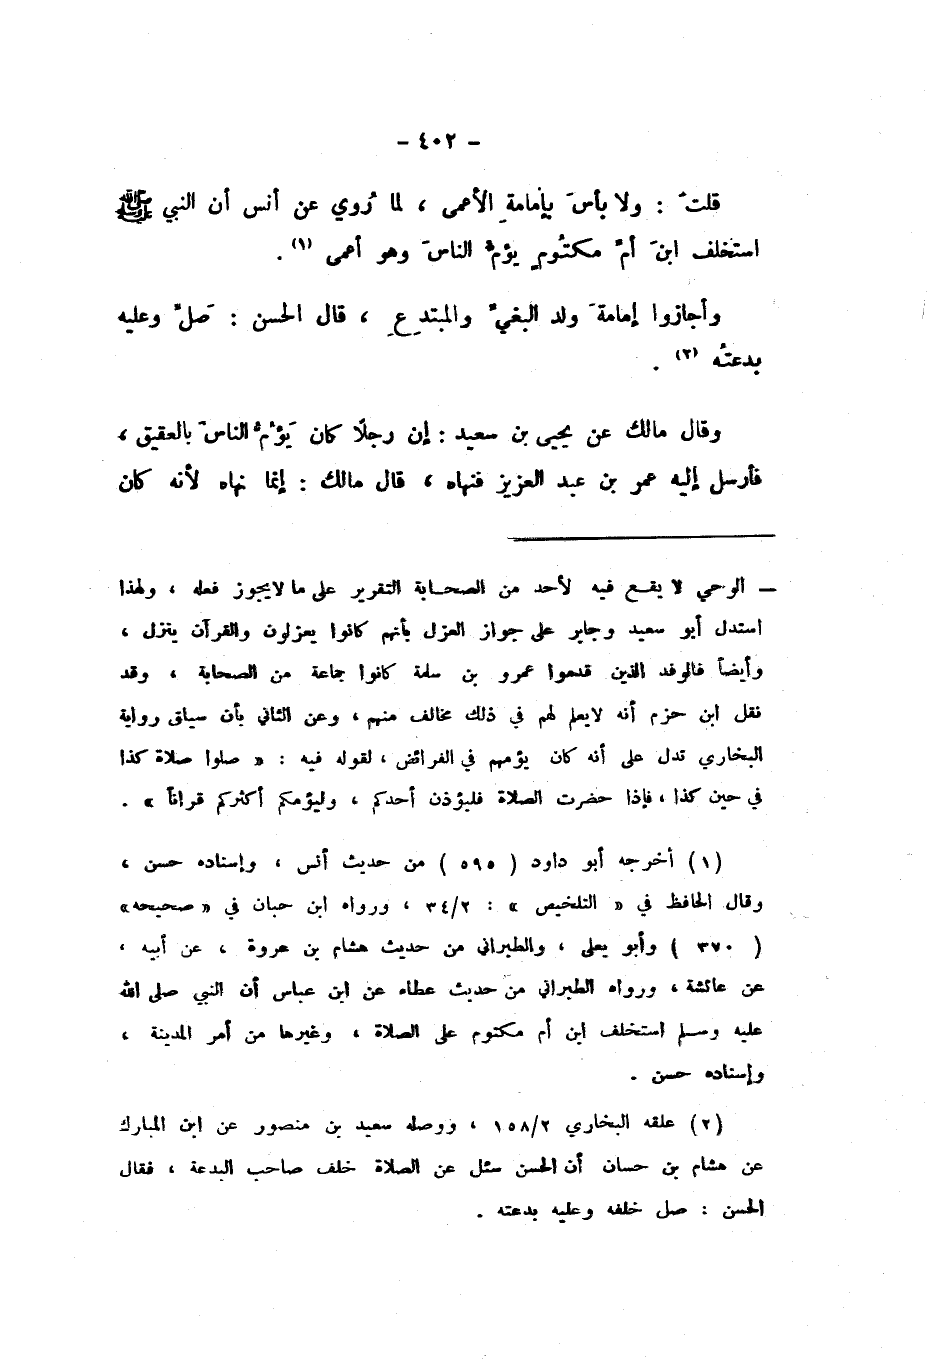 - ٤٠٢ -
قلتُ : ولا بأسَ بإمامةِ الأعمى ، لما رُوي عن أنس أن النبي ﷺ
استخلف ابنَ أمِّ مكتُومٍ يؤمُّ الناسَ وهو أعمى (١) .
وأجازوا إمامةَ ولد البغيِّ والمبتدِعِ ، قال الحسن : صَلِّ وعليه
بدعتُه (٢) .
وقال مالك عن يحيى بن سعيد : إن رجلًا كان يَؤُمُّ الناسَ بالعقيق ،
فأرسل إليه عمر بن عبد العزيز فنهاه ، قال مالك : إنما نهاه لأنه كان
ــ الوحي لا يقع فيه لأحد من الصحابة التقرير على ما لايجوز فعله ، ولهذا
استدل أبو سعيد وجابر على جواز العزل بأنهم كانوا يعزلون والقرآن ينزل ،
وأيضاً فالوفد الذين قدموا عمرو بن سلمة كانوا جماعة من الصحابة ، وقد
نقل ابن حزم أنه لايعلم لهم في ذلك مخالف منهم ، وعن الثاني بأن سياق رواية
البخاري تدل على أنه كان يؤمهم في الفرائض ، لقوله فيه : « صلوا صلاة كذا
في حين كذا ، فإذا حضرت الصلاة فليؤذن أحدكم ، وليؤمكم أكثركم قرآناً » .
(١) أخرجه أبو داود ( ٥٩٥ ) من حديث أنس ، وإسناده حسن ،
وقال الحافظ في « التلخيص » : ٣٤/٢ ، ورواه ابن حبان في « صحيحه »
( ٣٧٠ ) وأبو يعلى ، والطبراني من حديث هشام بن عروة ، عن أبيه ،
عن عائشة ، ورواه الطبراني من حديث عطاء عن ابن عباس أن النبي صلى الله
عليه وسلم استخلف ابن أم مكتوم على الصلاة ، وغيرها من أمر المدينة ،
وإسناده حسن .
(٢) علقه البخاري ١٥٨/٢ ، ووصله سعيد بن منصور عن ابن المبارك
عن هشام بن حسان أن الحسن سئل عن الصلاة خلف صاحب البدعة ، فقال
الحسن : صل خلفه وعليه بدعته .